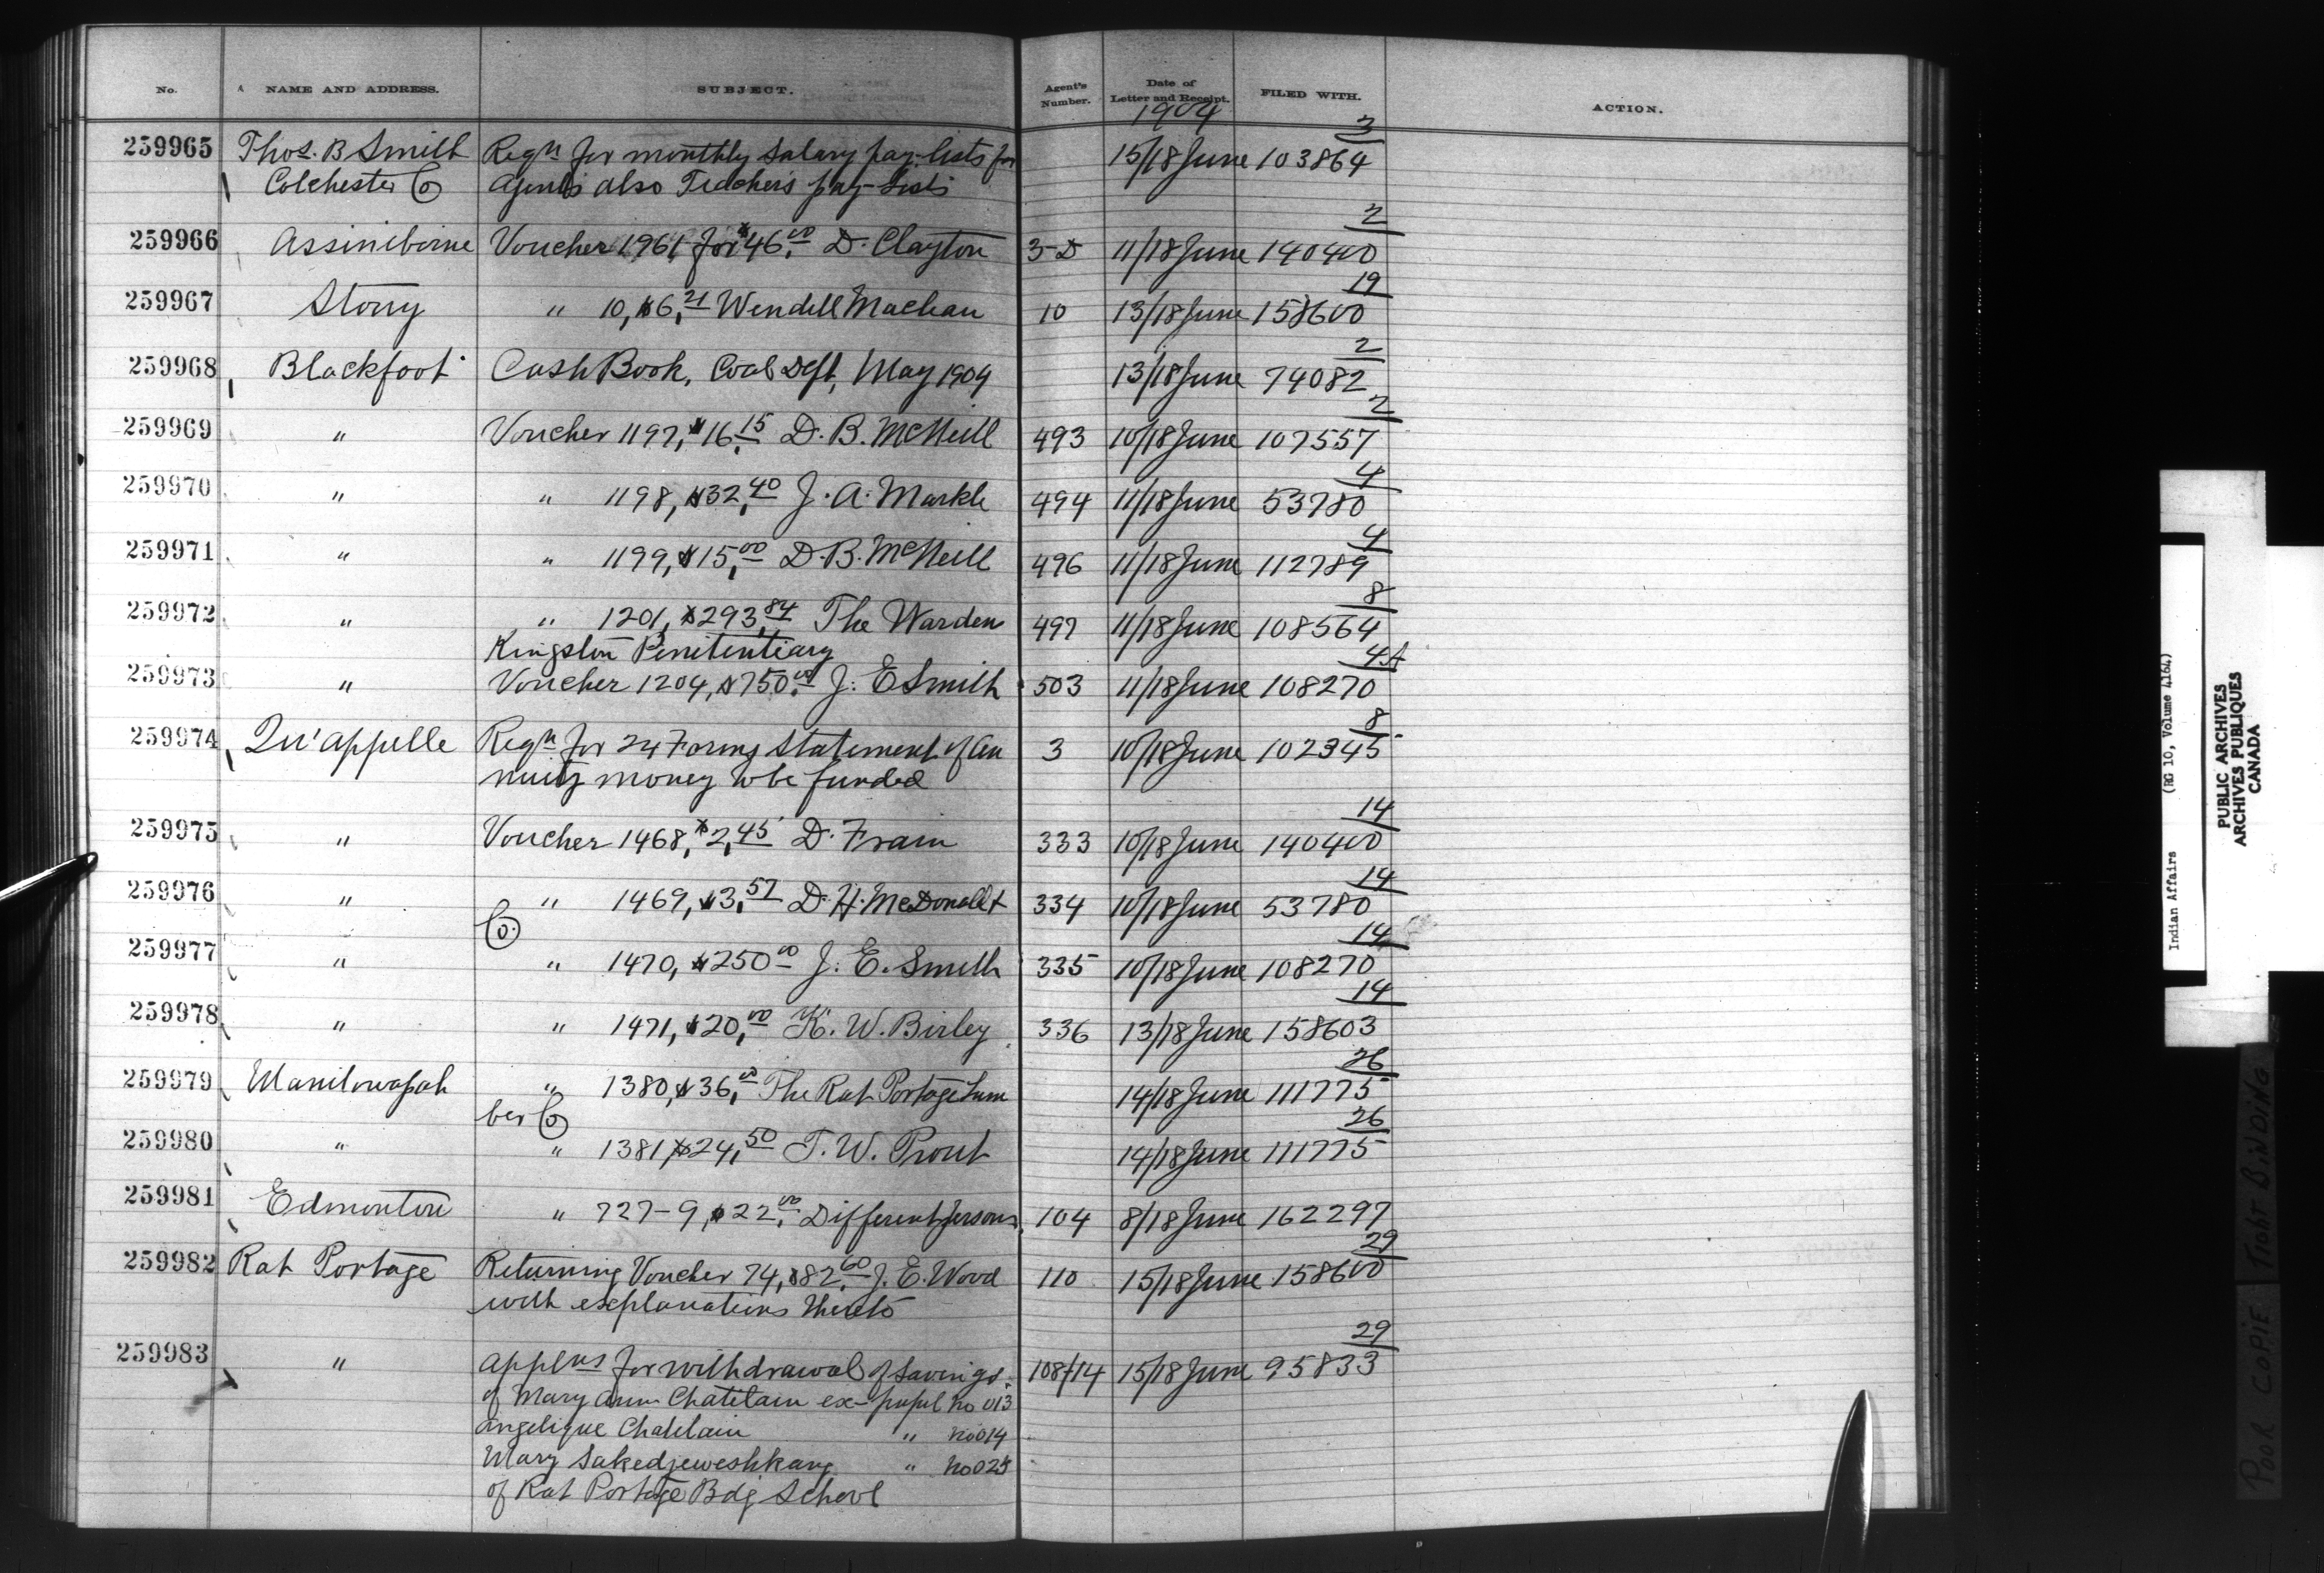 No. NAME AND ADDRESS. SUBJECT. Agent's Number. Date of Letter and Receipt. FILED WITH. ACTION.
1904
3
259965 Thos. B Smith Reqn for monthly Salary pay-lists for 15/18 June 103864
Colchester Co Agents also Teachers pay-lists
2
259966 Assiniboine Voucher 1961 for $46.00 D. Clayton 3-D 11/18 June 140400
19
259967 Stony " 10, $6.21 Wendell Maclean 10 13/18 June 158600
2
259968 Blackfoot Cash Book, Coal Dept, May 1904 13/18 June 74082
2
259969 " Voucher 1197, $16.15 D. B. McNeill 493 10/18 June 107557
4
259970 " " 1198, $32.40 J. A. Markle 494 11/18 June 53780
4
259971 " " 1199, $15.00 D. B. McNeill 496 11/18 June 112789
8
259972 " " 1201, $293.84 The Warden 497 11/18 June 108564
Kingston Penitentiary
4A
259973 " Voucher 1204, $750.00 J. E Smith 503 11/18 June 108270
8
259974 Qu'appelle Reqn for 24 Forms Statement of An 3 10/18 June 102345
nuity money to be funded
14
259975 " Voucher 1468, $2.45 D. Frain 333 10/18 June 140400
14
259976 " " 1469, $3.57 D. H. McDonald & 334 10/18 June 53780
Co.
14
259977 " " 1470, $250.00 J. E. Smith 335 10/18 June 108270
14
259978 " " 1471, $20.00 K. W. Birley 336 13/18 June 158603
26
259979 Manitowapah " 1380, $36.00 The Rat Portage Lum 14/18 June 111775
ber Co
26
259980 " " 1381, $24.50 T. W. Prout 14/18 June 111775
259981 Edmonton " 727-9, $22.00 Different persons 104 8/18 June 162297
29
259982 Rat Portage Returning Voucher 74, $82.60 J. E. Wood 110 15/18 June 158600
with explanations thereto
29
259983 " Applns for withdrawal of Savings 108/14 15/18 June 95833
of Mary Ann Chatelain ex-pupil No 013
Angelique Chatelain " No 014
Mary Sakedjeweshkang " No 025
of Rat Portage Bdg School
Indian Affairs (RG 10, Volume 4164)
PUBLIC ARCHIVES
ARCHIVES PUBLIQUES
CANADA
POOR COPIE TIGHT BINDING